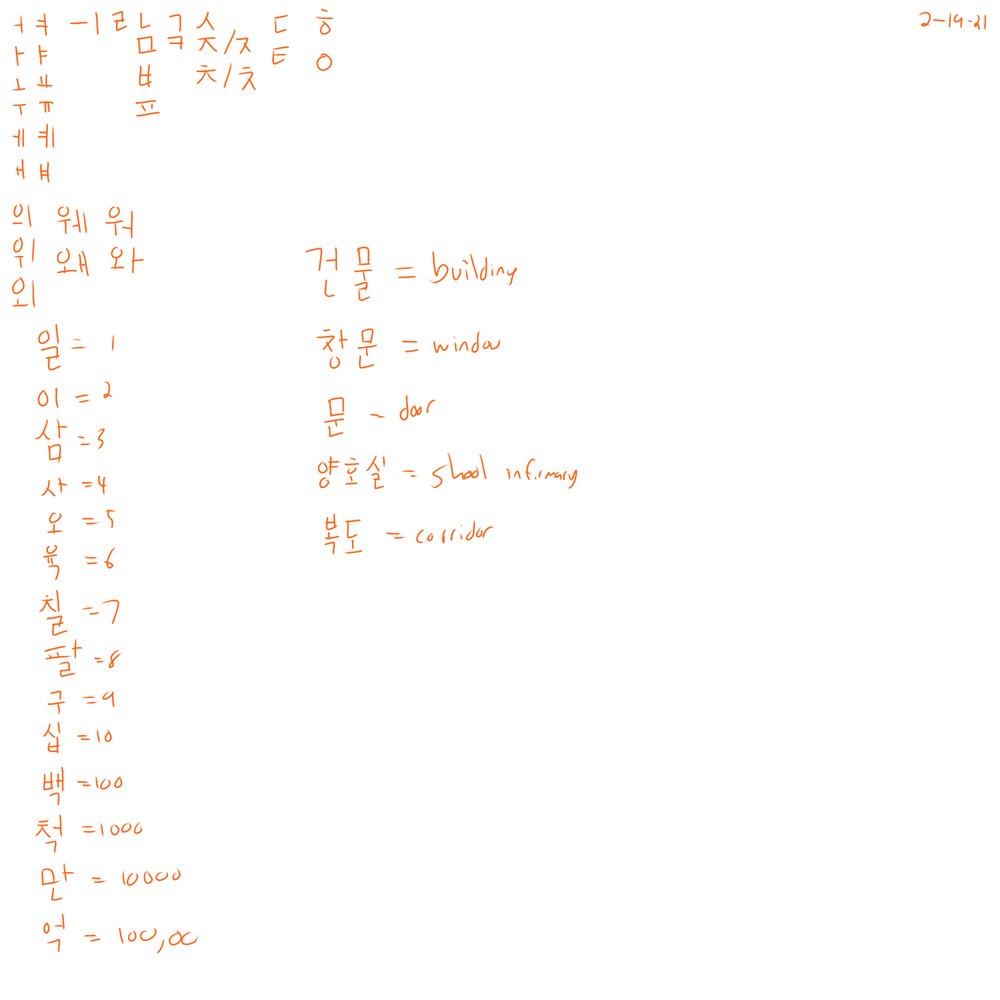 ㅓ ㅕ ㅡ ㅣ ㄹ ㄴ ㄱ ㅅ ㄷ ㅎ 2-19-21
ㅏ ㅑ ㅁ ㅋ ㅈ/ㅈ ㅌ ㅇ
ㅗ ㅛ ㅂ ㅊ/ㅊ
ㅜ ㅠ ㅍ
ㅔ ㅖ
ㅐ ㅒ
의 웨 워
위 왜 와
외
일 = 1
이 = 2
삼 = 3
사 = 4
오 = 5
육 = 6
칠 = 7
팔 = 8
구 = 9
십 = 10
백 = 100
척 = 1000
만 = 10000
억 = 100,00
건물 = building
창문 = window
문 - door
양호실 = shool infirmary
복도 = corridor